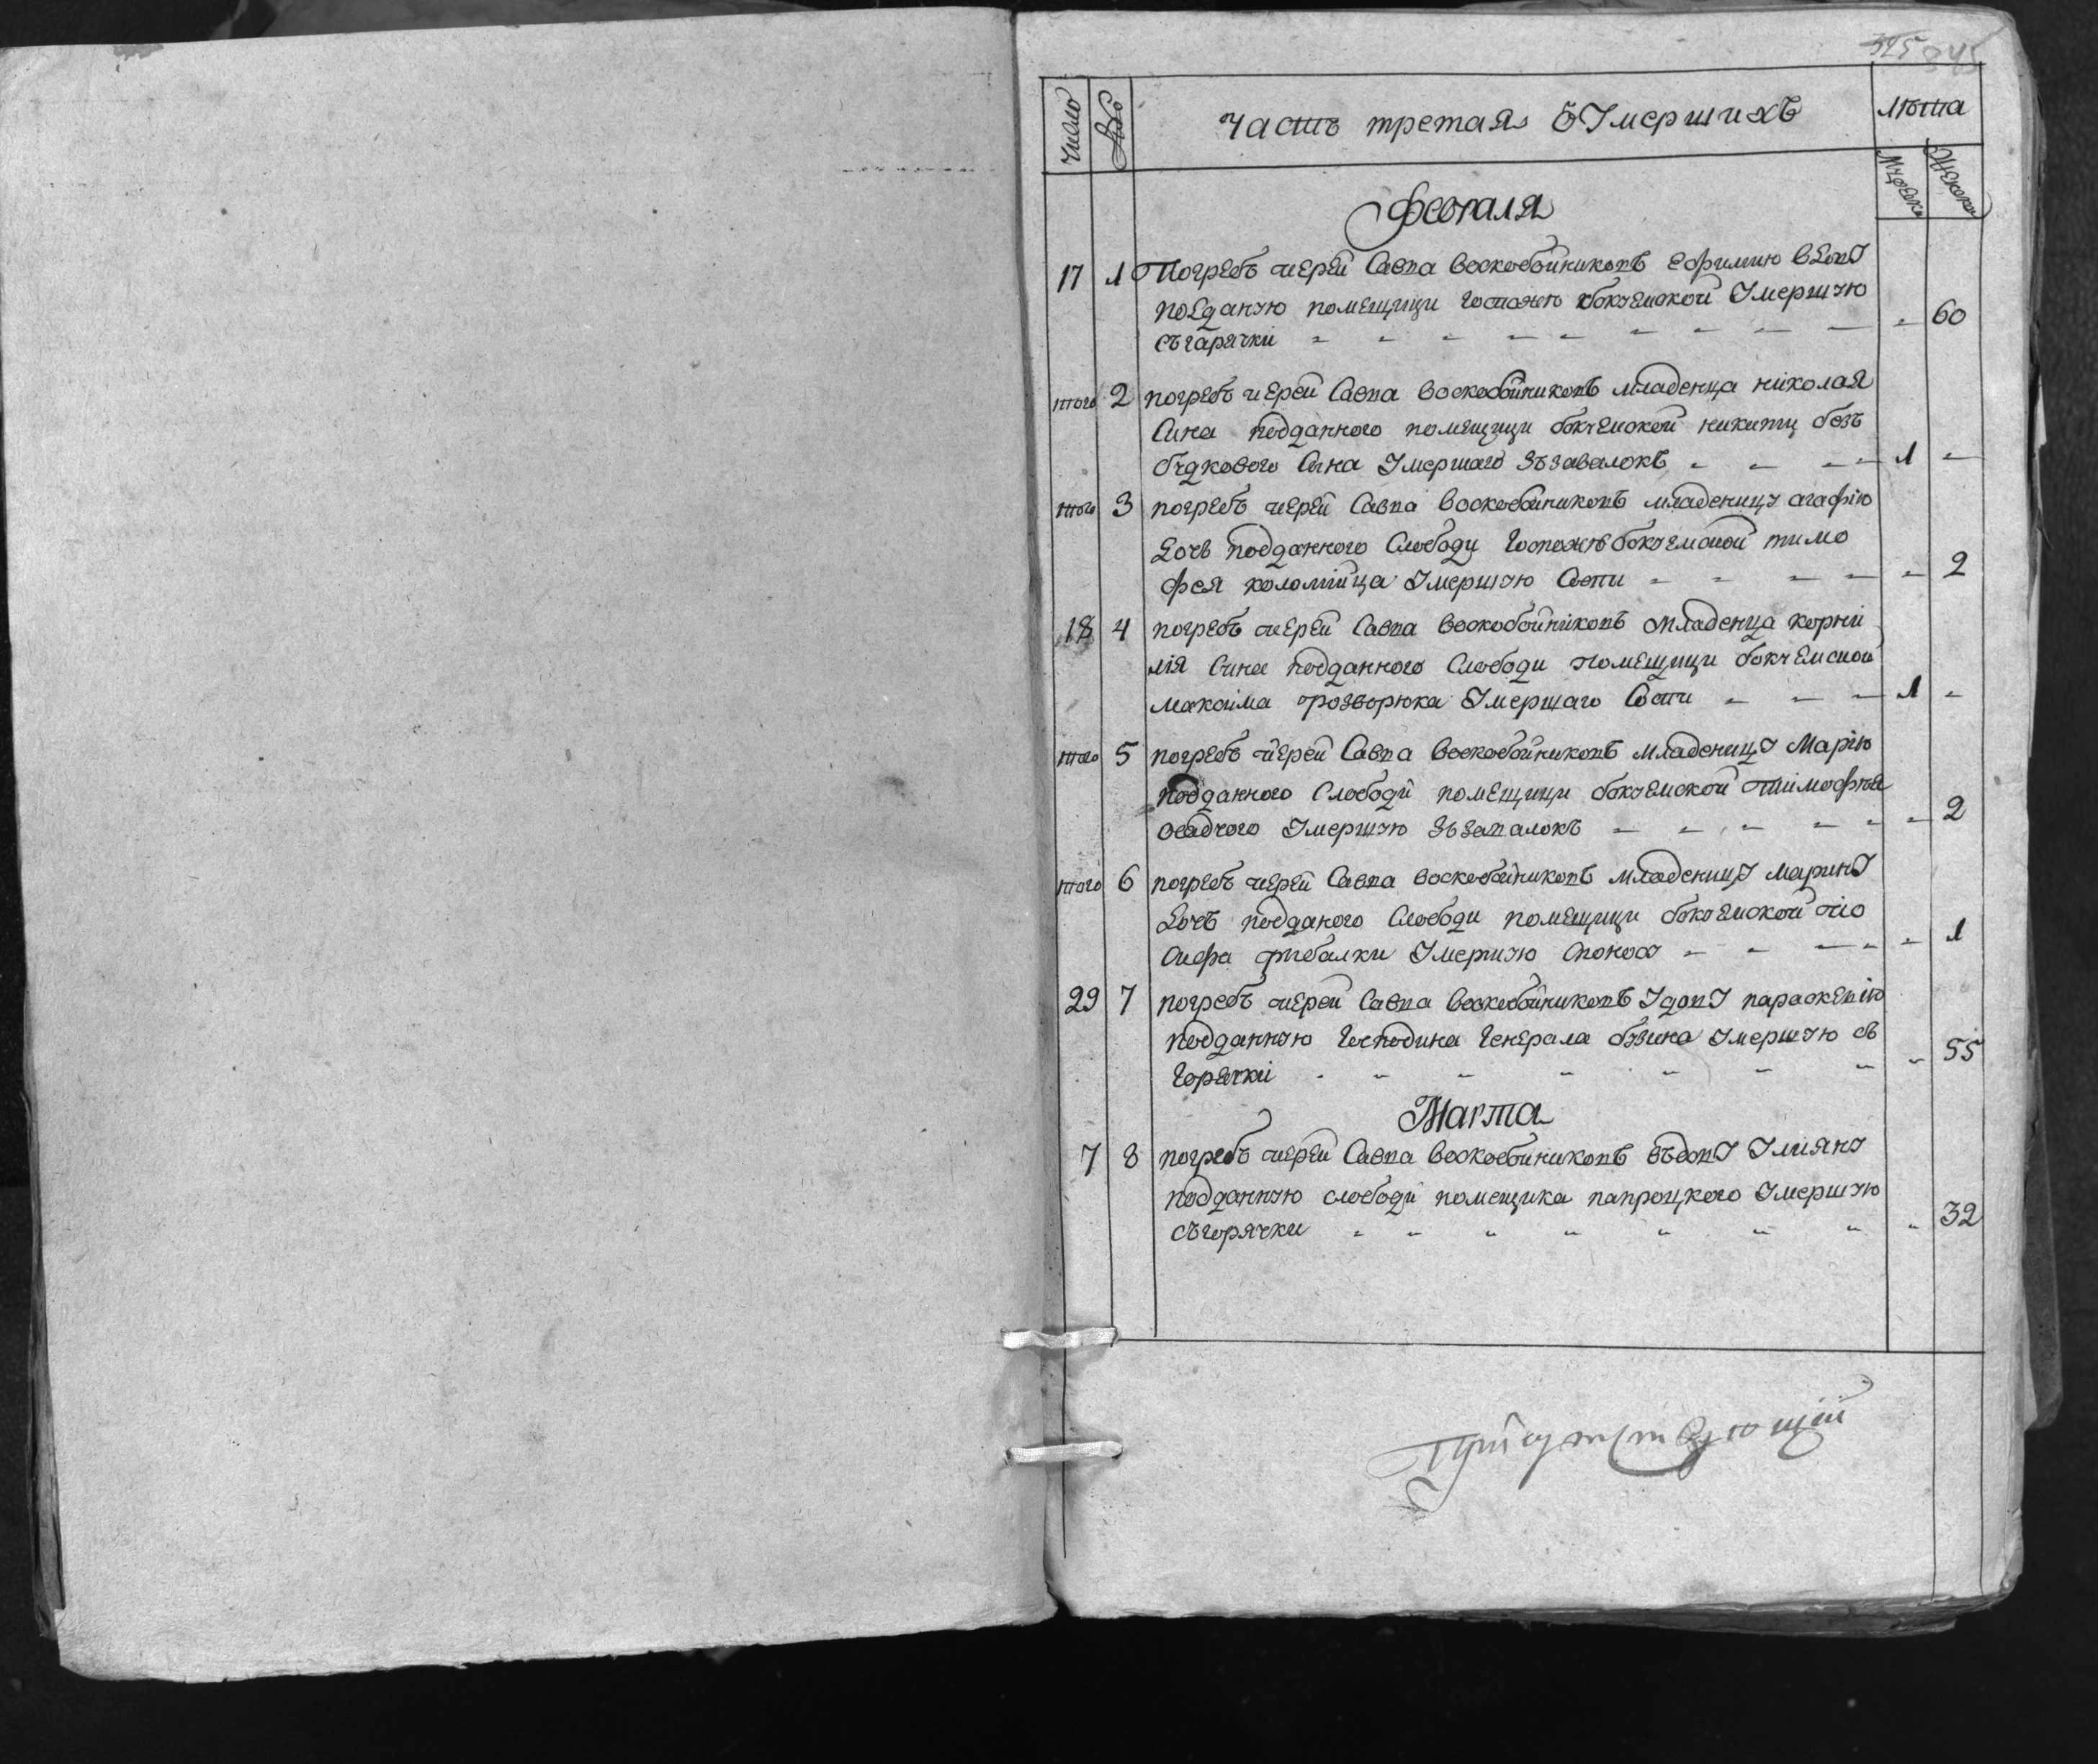 345
Число
№
часть третая о Умершихъ
лѣта
Мужеска
Женска
Февраля
17 1 Погребъ иерей Савва Воскобойниковъ Ефимию вдову
подданую помещици госпожи Умершую
съ гарячки 60
того 2 погребъ иерей Савва Воскобойниковъ младенца николая
Сина подданного помещици никити безъ
Сина Умершаго зъ завалокъ 1
того 3 погребъ иерей Савва Воскобойниковъ младеницу агафію
Дочь подданного Слободи Госпожи тимо
фея коломійца Умершую Оспи 2
18 4 погребъ иерей Савва Воскобойніковъ младенца корни
лія Сина подданного Слободи помещици
максима Умершаго Оспи 1
того 5 погребъ иерей Савва Воскобойниковъ младеницу Марію
подданного Слободи помещици тимофѣя
осадчого Умершую зъ завалокъ 2
того 6 погребъ иерей Савва Воскобойниковъ младеницу Марину
Дочь подданого Слободи помещици Іо
сифа рибалки Умершую 1
29 7 погребъ иерей Савва Воскобойниковъ Удову параскевію
подданную Господина Генерала Умершую съ
Горячки 55
Марта
7 8 погребъ иерей Савва Воскобойниковъ въдову Улияну
подданную слободи помещика папроцкого Умершую
съ горячки 32